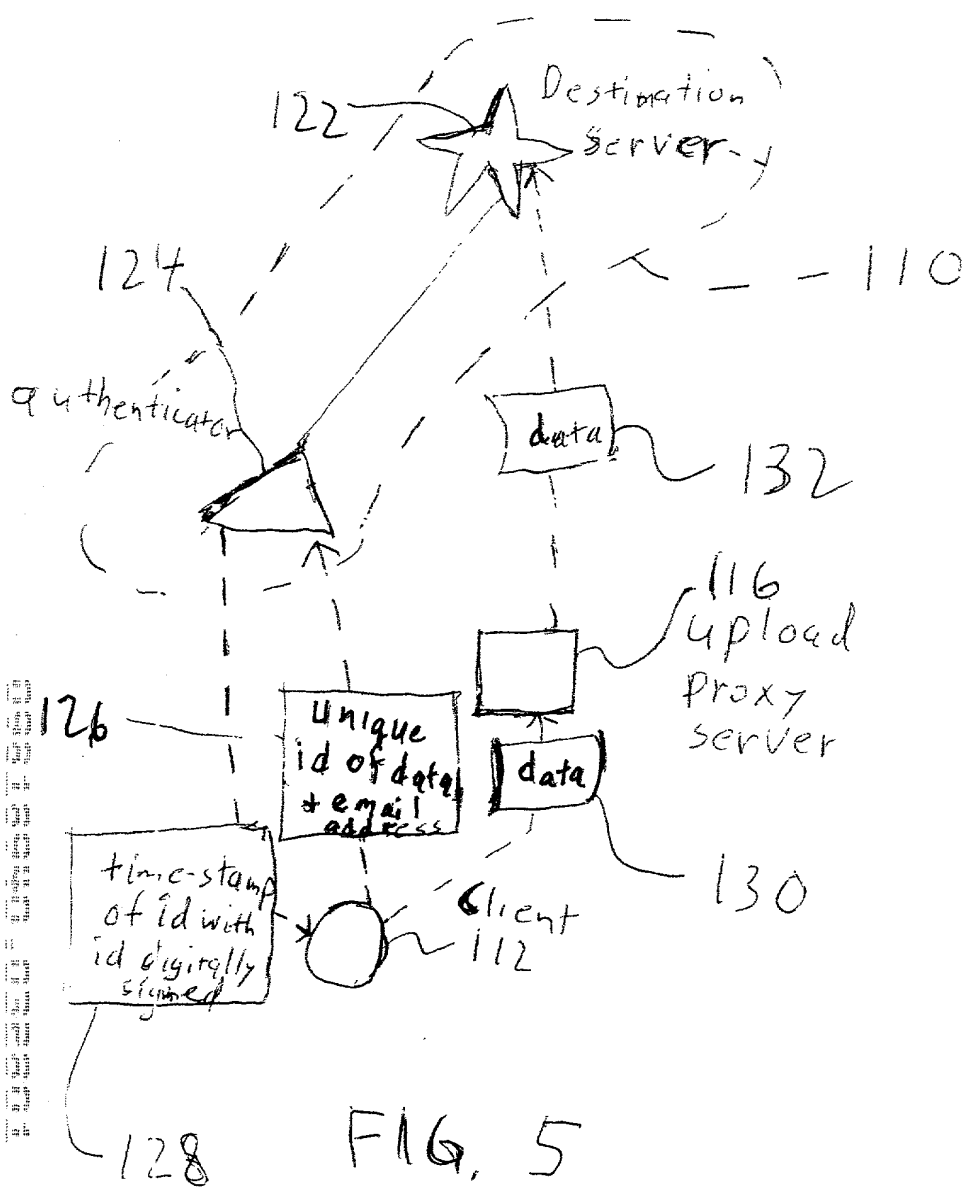 122
Destination
server
124
110
authenticator
data
132
116
upload
proxy
server
126
unique
id of data
+ email
address
data
time-stamp
of id with
id digitally
signed
client
112
130
128
FIG. 5